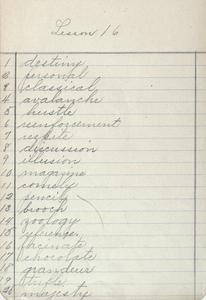 Lesson 16
1 destiny
2 personal
3 classical
4 avalanche
5 hustle
6 reenforcement
7 respite
8 discussion
9 illusion
10 magazine
11 comely
12 pencil
13 brooch
14 zoology
15 reference
16 facinate
17 chocolate
18 grandeur
19 trifle
20 majesty